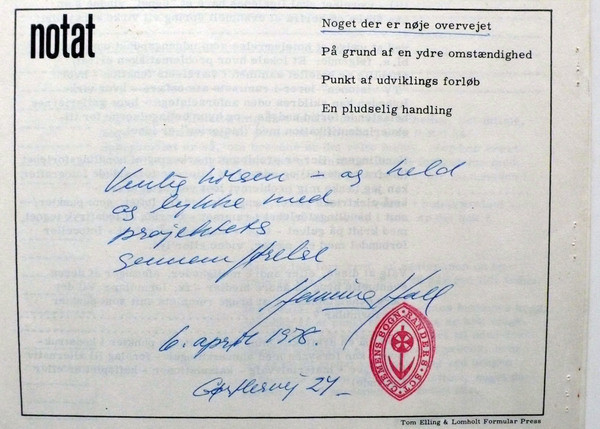 notat
Noget der er nøje overvejet
På grund af en ydre omstændighed
Punkt af udviklings forløb
En pludselig handling
Venlig hilsen – og held
og lykke med
projektets
gennemførelse
Henning
6. april 1978.
24
CLEMENS SOGN RANDERS SCT.
Tom Elling & Lomholt Formular Press